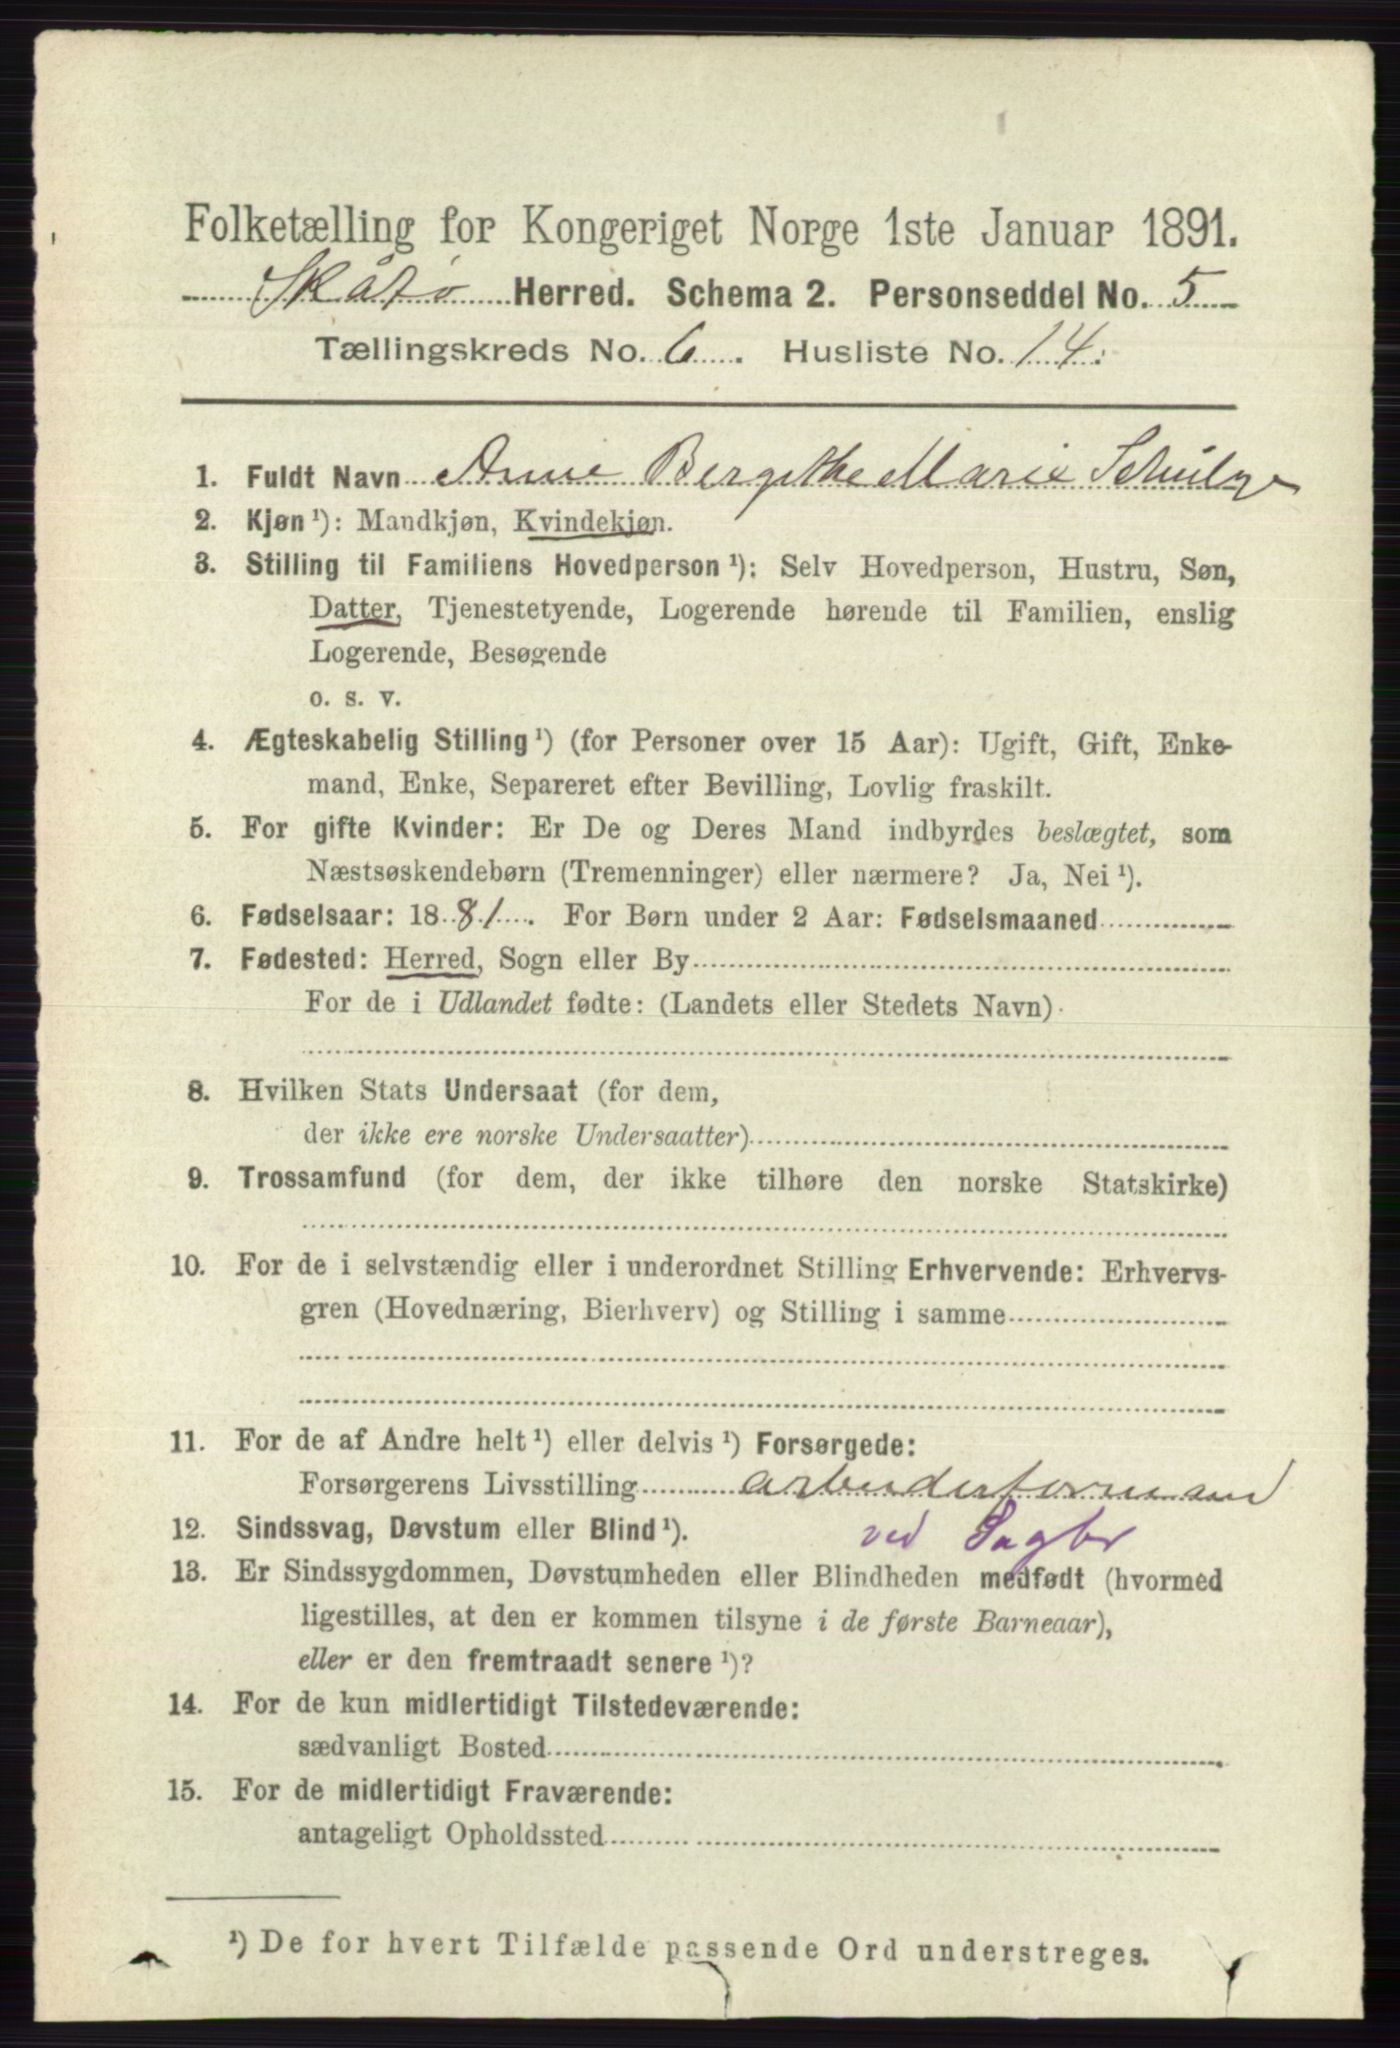 Folketælling for Kongeriget Norge 1ste Januar 1891.
Skåtø Herred. Schema 2. Personseddel No. 5
Tællingskreds No. 6. Husliste No. 14.
1. Fuldt Navn Anne Bergithe Marie Schulze
2. Kjøn ¹): Mandkjøn, Kvindekjøn.
3. Stilling til Familiens Hovedperson ¹): Selv Hovedperson, Hustru, Søn,
Datter, Tjenestetyende, Logerende hørende til Familien, enslig
Logerende, Besøgende
o. s. v.
4. Ægteskabelig Stilling ¹) (for Personer over 15 Aar): Ugift, Gift, Enke-
mand, Enke, Separeret efter Bevilling, Lovlig fraskilt.
5. For gifte Kvinder: Er De og Deres Mand indbyrdes beslægtet, som
Næstsøskendebørn (Tremenninger) eller nærmere? Ja, Nei ¹).
6. Fødselsaar: 1881. For Børn under 2 Aar: Fødselsmaaned
7. Fødested: Herred, Sogn eller By
For de i Udlandet fødte: (Landets eller Stedets Navn)
8. Hvilken Stats Undersaat (for dem,
der ikke ere norske Undersaatter)
9. Trossamfund (for dem, der ikke tilhøre den norske Statskirke)
10. For de i selvstændig eller i underordnet Stilling Erhvervende: Erhvervs-
gren (Hovednæring, Bierhverv) og Stilling i samme
11. For de af Andre helt ¹) eller delvis ¹) Forsørgede:
Forsørgerens Livsstilling arbeiderformand
12. Sindssvag, Døvstum eller Blind ¹). ved Sagbr
13. Er Sindssygdommen, Døvstumheden eller Blindheden medfødt (hvormed
ligestilles, at den er kommen tilsyne i de første Barneaar),
eller er den fremtraadt senere ¹)?
14. For de kun midlertidigt Tilstedeværende:
sædvanligt Bosted
15. For de midlertidigt Fraværende:
antageligt Opholdssted
¹) De for hvert Tilfælde passende Ord understreges.